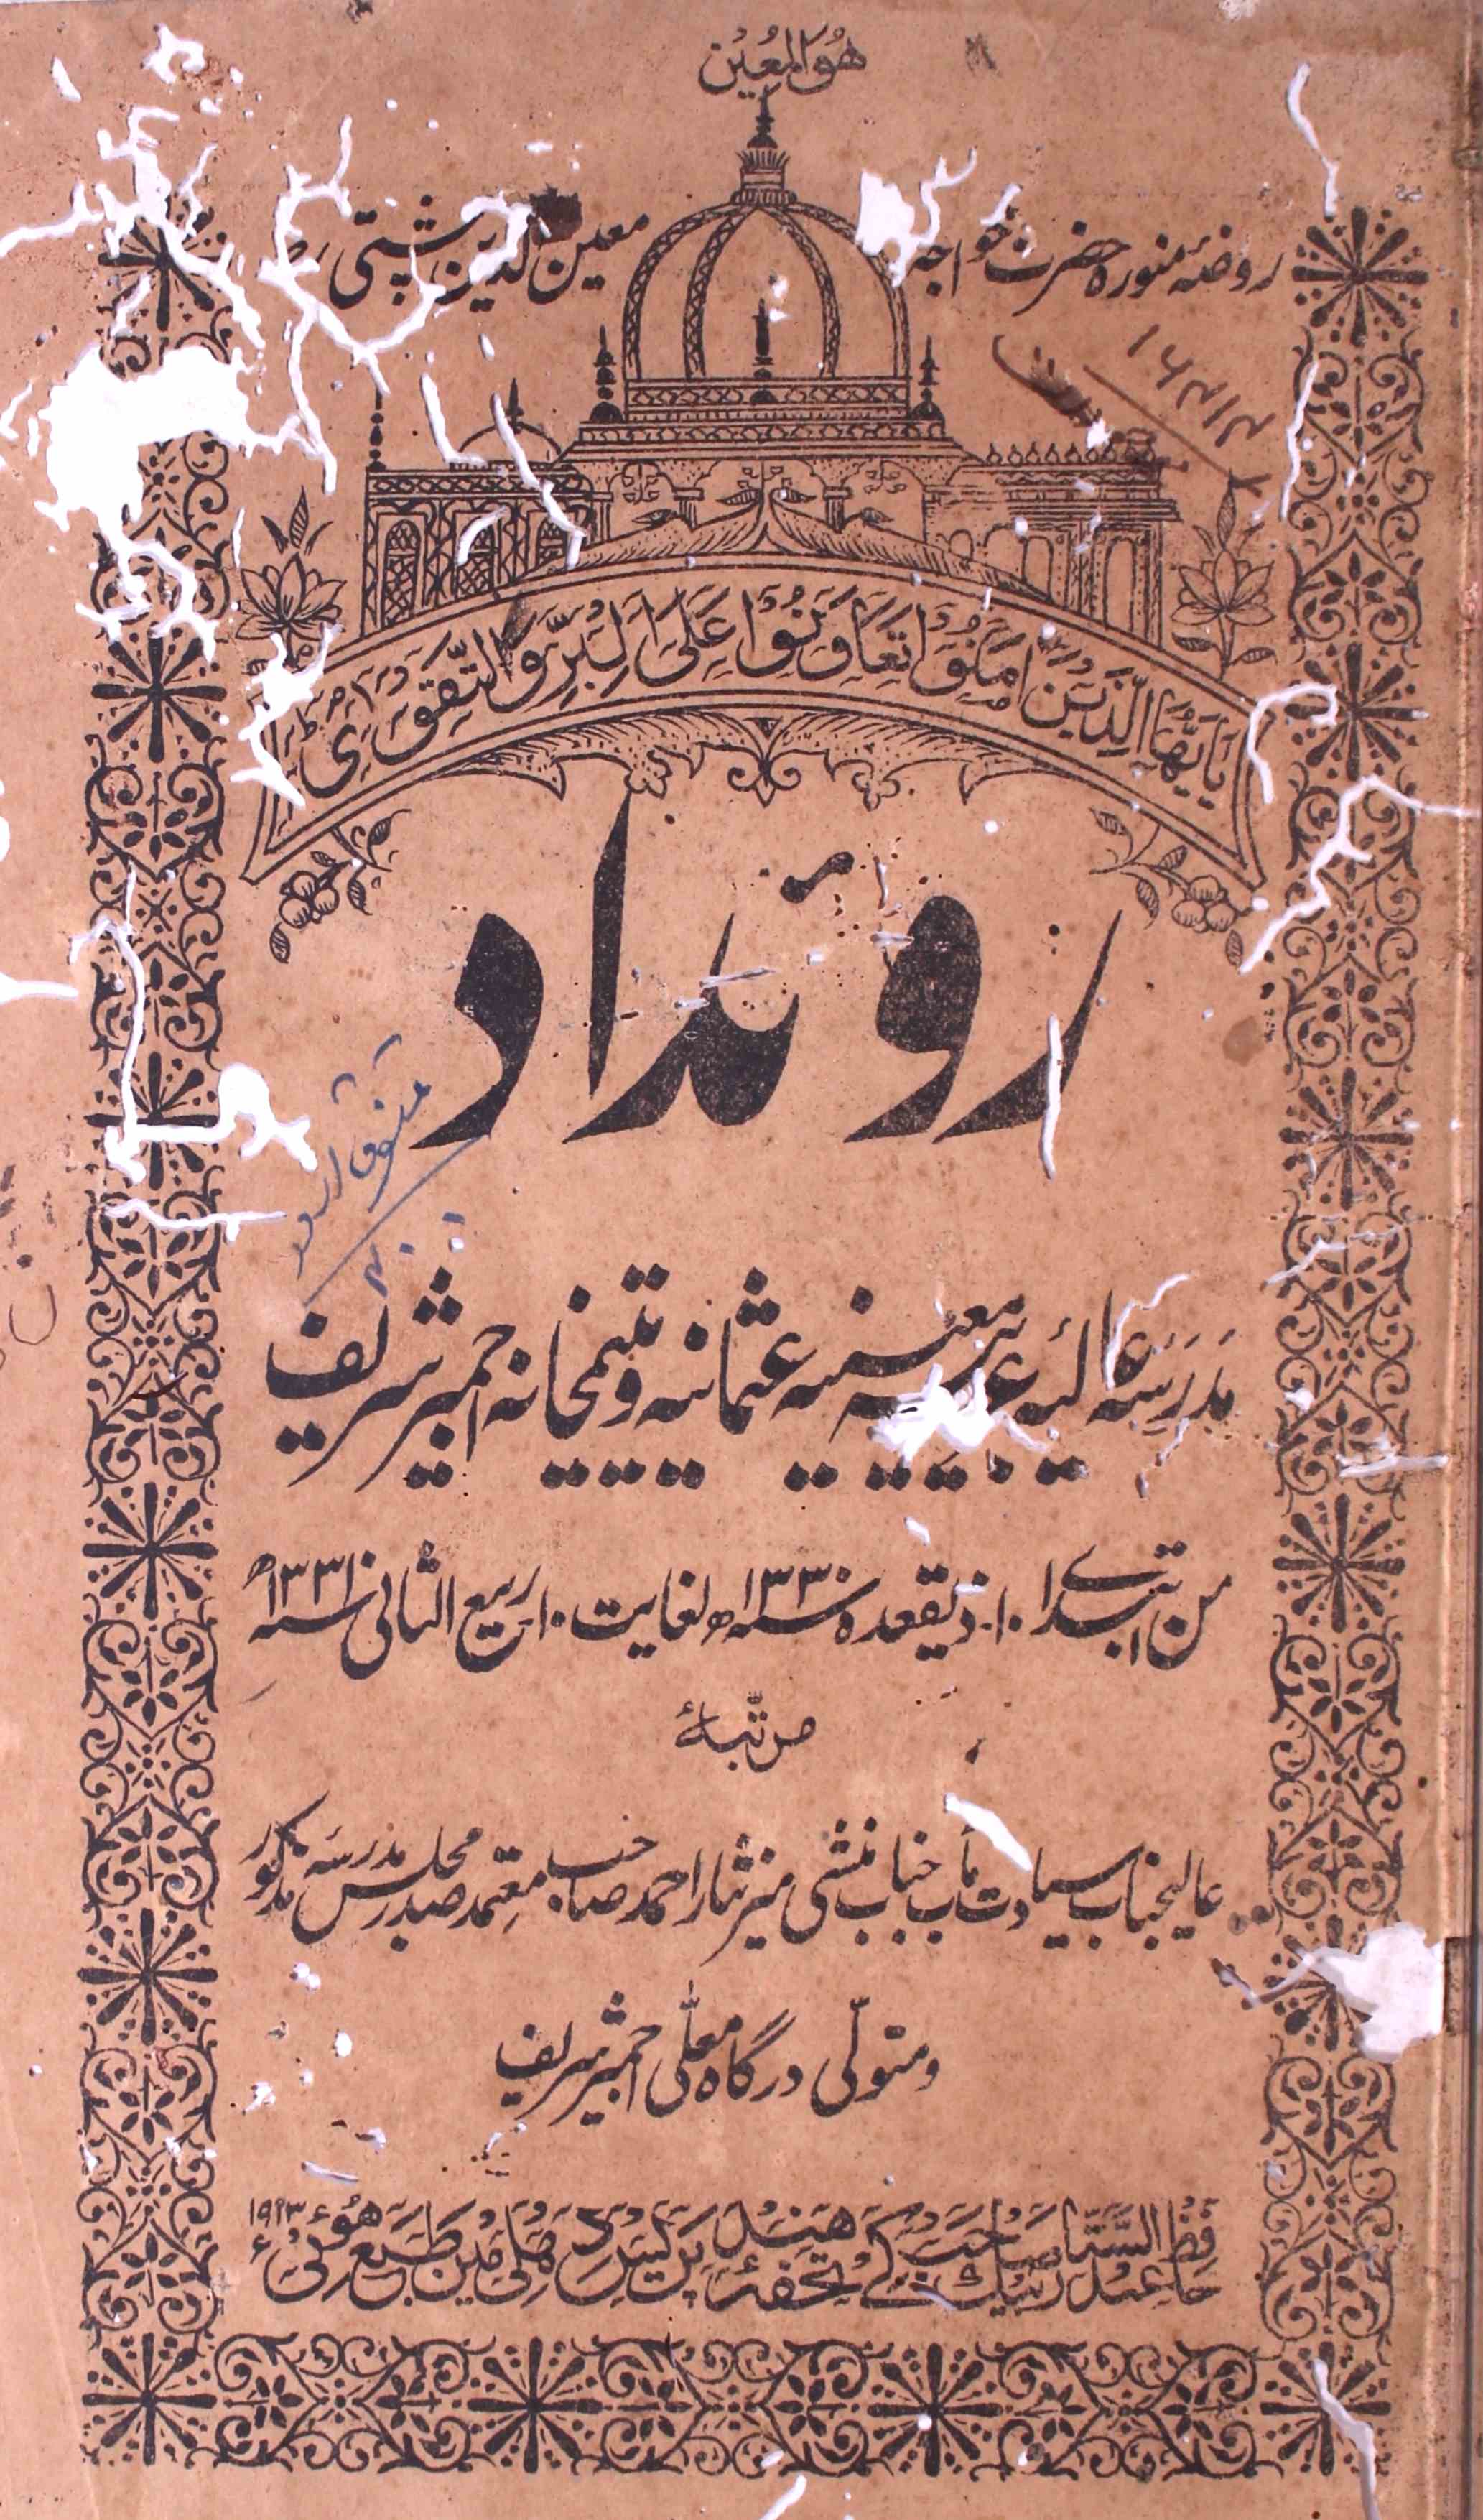 هُوَ المُعِیْن
روضۂ منورہ حضرت خواجہ معین الدین چشتی رح
یٰۤاَیُّهَا الَّذِیْنَ اٰمَنُوْا تَعَاوَنُوْا عَلَى الْبِرِّ وَ التَّقْوٰى
روئداد
متفرق اردو
مدرسہ عالیہ عربیہ معینیہ عثمانیہ و یتیمخانہ اجمیر شریف
من ابتدائے ۱۰ ذیقعدہ سنہ ۱۳۳۰ھ لغایت ۱۰ ربیع الثانی سنہ ۱۳۳۱ھ
مرتبۂ
عالیجناب سیادت مآب جناب منشی میر نثار احمد صاحب معتمد صدر مجلس مدرسہ مذکور
و متولی درگاہ معلی اجمیر شریف
حافظ عبد الستار بیگ صاحب کے تحفۂ ہند پریس دہلی میں طبع ہوئی ۱۹۱۳ء